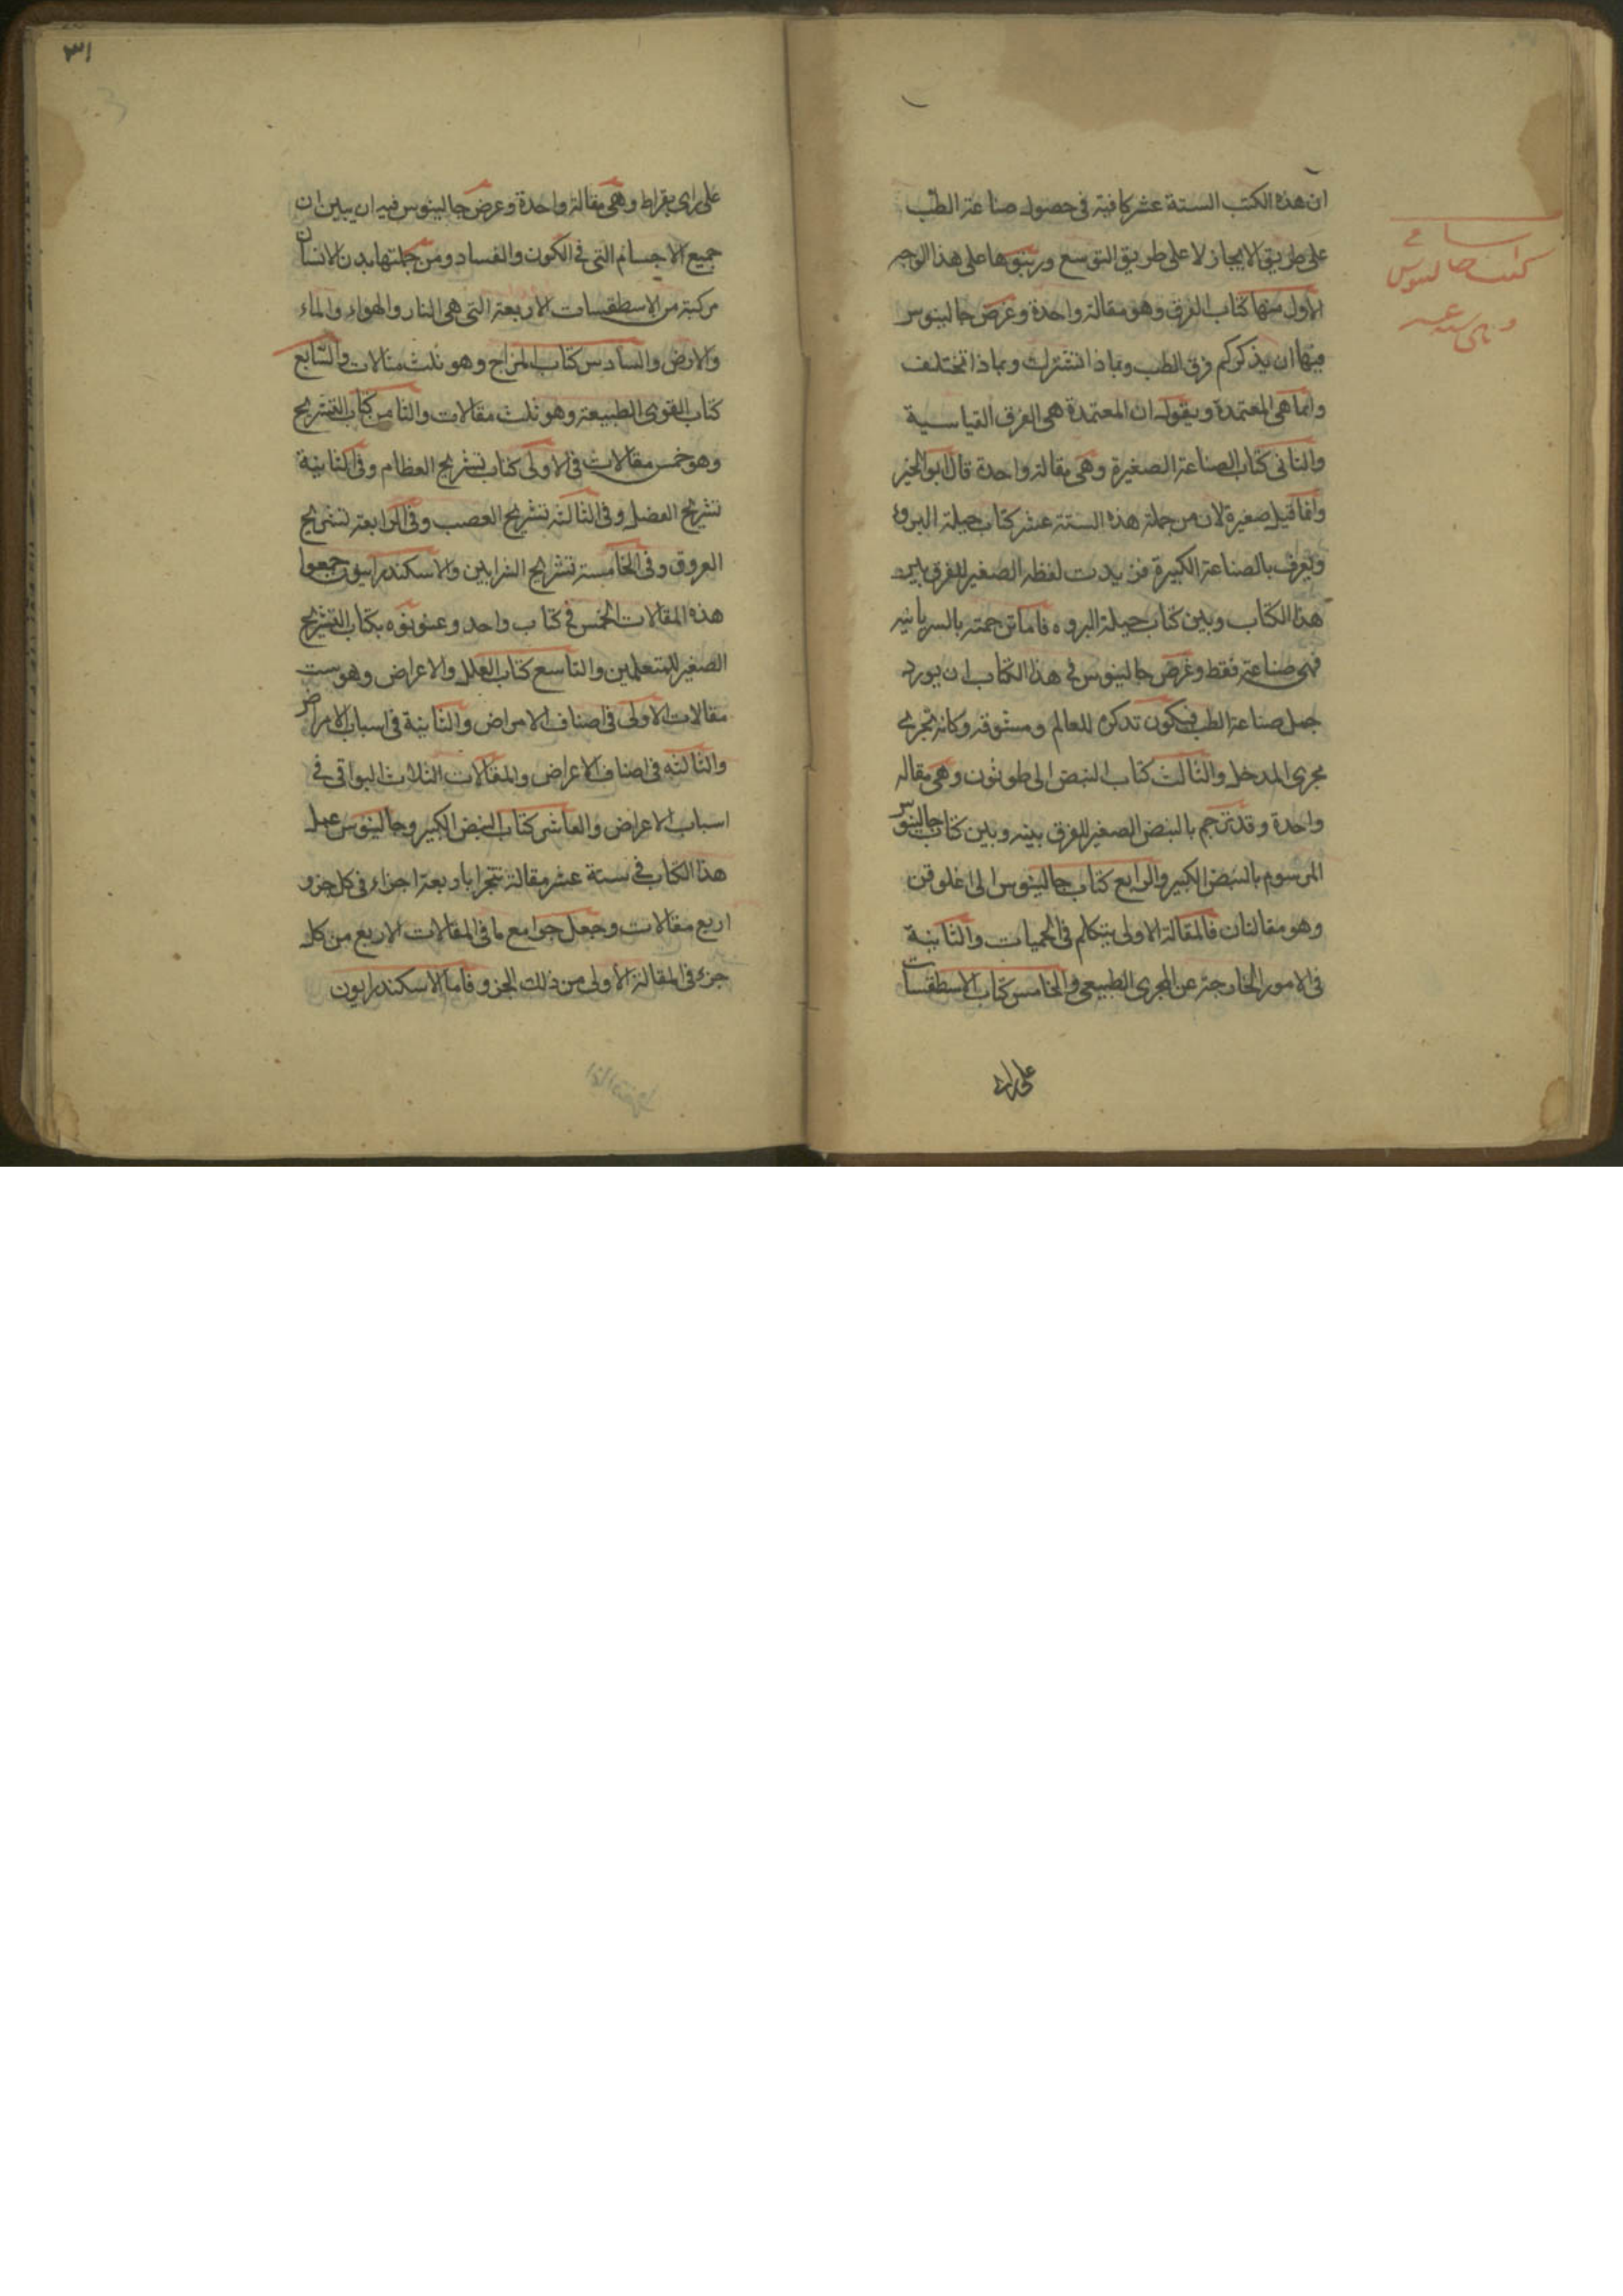 ان هذه الكتب الستة عشر كافية فى حصول صناعة الطب
على طريق الايجاز لا على طريق التوسع ورتبوها على هذا الوجه
الاول منها كتاب الفرق وهو مقالة واحدة وغرض جالينوس
فيها ان يذكر كم فرق الطب وبماذا تشترك وبماذا تختلف
وايما هى المعتمدة ويقول ان المعتمدة هى الفرق القياسية
والثانى كتاب الصناعة الصغيرة وهى مقالة واحدة قال ابو الخير
وانما قيل صغيرة لان من جملة هذه الستة عشر كتاب حيلة البروء
وتعرف بالصناعة الكبيرة فزيدت لفظه الصغير للفرق بين
هذا الكتاب وبين كتاب حيلة البروء فاما ترجمته بالسريانيه
فهى صناعة فقط وغرض جالينوس فى هذا الكتاب ان يورد
جمل صناعة الطب فيكون تذكره للعالم ومشوقه وكانه تجرى
مجرى المدخل والثالث كتاب النبض الى طوثون وهى مقاله
واحدة وقد ترجم بالنبض الصغير للفرق بينه وبين كتاب جالينوس
المرسوم بالنبض الكبير والرابع كتاب جالينوس الى اغلوقن
وهو مقالتان فالمقالة الاولى يتكلم فى الحميات والثانية
فى الامور الخارجة عن المجرى الطبيعى والخامس كتاب الاسطقسات
على راى
اسامى
كتب جالينوس
وهى ستة عشر
٣١
على راى بقراط وهى مقالة واحدة وغرض جالينوس فيه ان يبين ان
جميع الاجسام التى فى الكون والفساد ومن جملتها بدن الانسان
مركبة من الاسطقسات الاربعة التى هى النار والهواء والماء
والارض والسادس كتاب المزاج وهو ثلث مقالات والسابع
كتاب القوى الطبيعة وهو ثلث مقالات والثامن كتاب التشريح
وهو خمس مقالات فى الاولى كتاب تشريح العظام وفى الثانية
تشريح العضل وفى الثالثة تشريح العصب وفى الرابعة تشريح
العروق وفى الخامسة تشريح الشرايين والاسكندرانيون جمعوا
هذه المقالات الخمس فى كتاب واحد وعنونوه بكتاب التشريح
الصغير للمتعلمين والتاسع كتاب العلل والاعراض وهو ست
مقالات الاولى فى اصناف الامراض والثانية فى اسباب الامراض
والثالثه فى اصناف الاعراض والمقالات الثلاث البواقى فى
اسباب الاعراض والعاشر كتاب النبض الكبير وجالينوس عمل
هذا الكتاب فى ستة عشر مقالة تتجزا باربعة اجزاء فى كل جزو
اربع مقالات وجعل جوامع ما فى المقالات الاربع من كل
جزء فى المقالة الاولى من ذلك الجزو فاما الاسكندرانيون